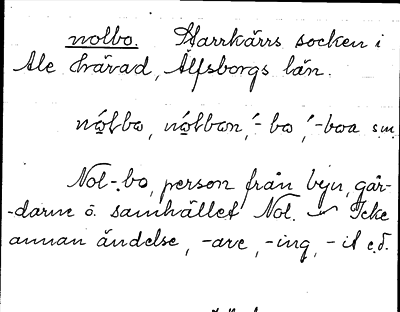 nolbo. Starrkärrs socken i
Ale härad, Älfsborgs län.
nólbo, nólbon, ´- bo, ´-boa sm.
Nol-bo, person från byn, går-
-darne o. samhället Nol. Icke
annan ändelse, -are, -ing, -it e.d.